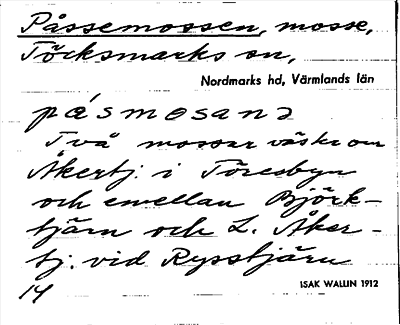 Påssemossen, mosse,
Töcksmarks sn,
Nordmarks hd, Värmlands län
pásmosanə
Två mossar väster om
Åkertj. i Töresbyn
och emellan Björk-
tjärn och L. Åker-
tj. vid Rysstjärn
14
ISAK WALLIN 1912